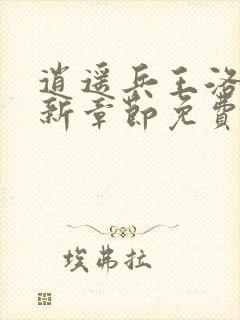 逍遥兵王洛
新章節免費
埃弗拉